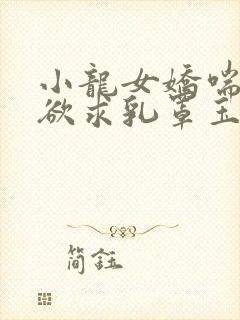 小龍女嬌喘
欲求乳罩玉
簡鈺